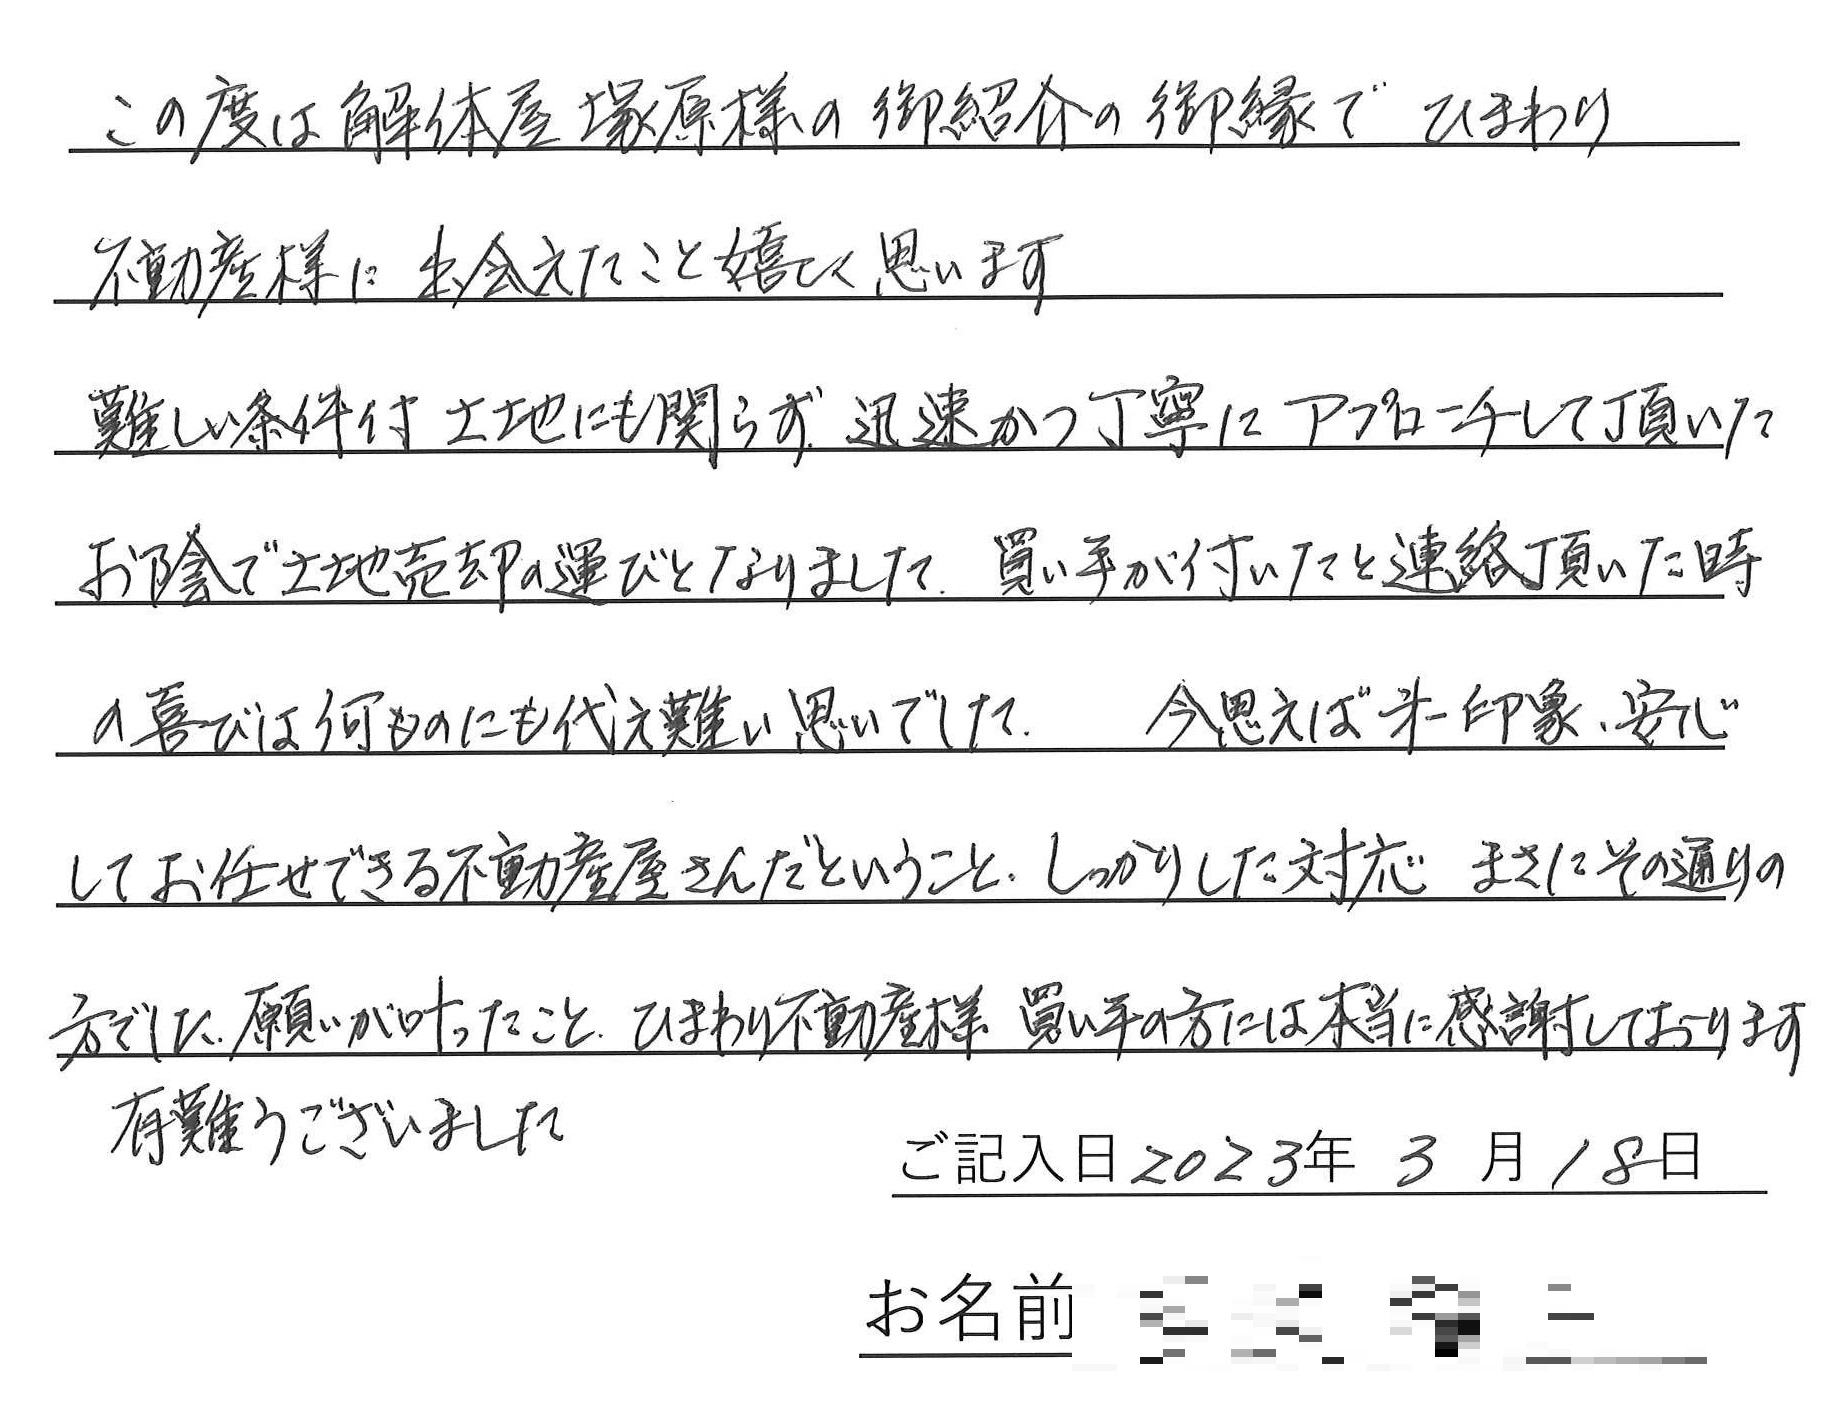 この度は解体屋 塚原様の 御紹介の 御縁で ひまわり
不動産様に 出会えたこと嬉しく思います
難しい条件付 土地にも関らず、迅速かつ丁寧に アプローチして頂いた
お陰で土地売却の運びとなりました。 買い手が付いたと連絡頂いた時
の喜びは何ものにも代え難い思いでした。 今思えば 第一印象、安心
してお任せできる不動産屋さんだということ、しっかりした対応 まさにその通りの
方でした、願いが叶ったこと、ひまわり不動産様 買い手の方には本当に感謝しております
有難うございました
ご記入日 2023年 3 月 18日
お名前